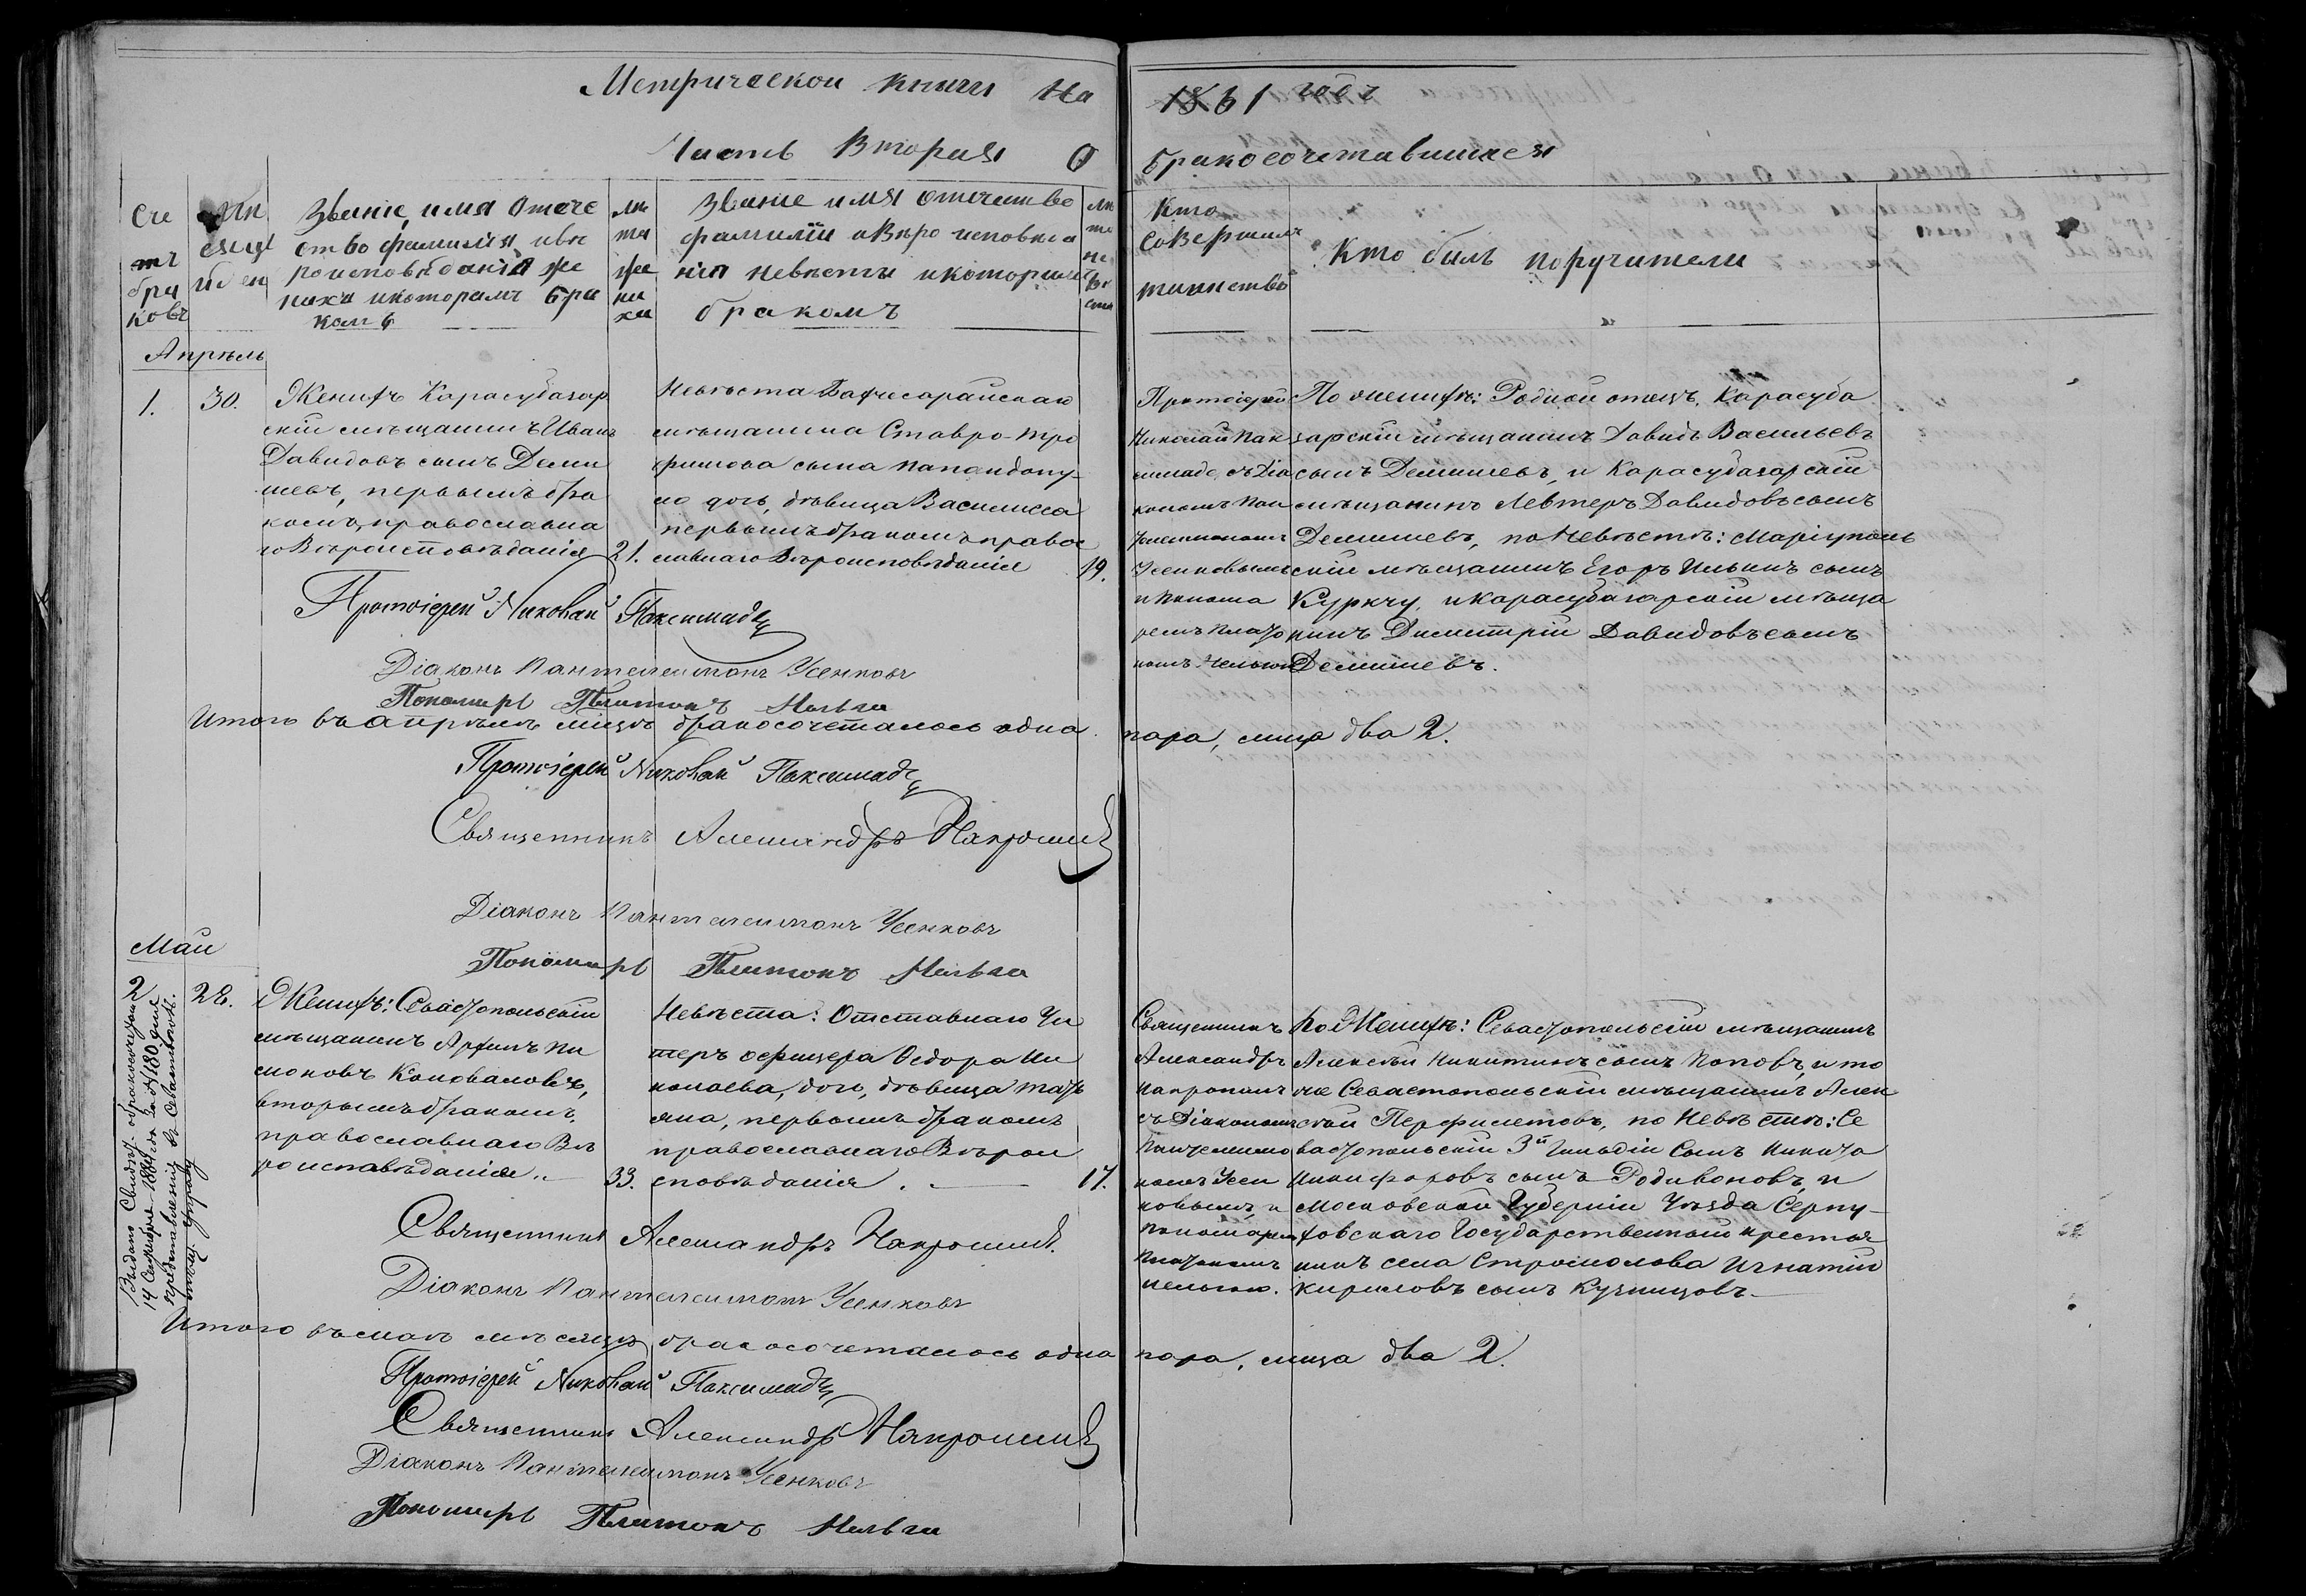 Метрической книги на 1861 года
Часть Вторая О бракосочетавшихся
Сче
тъ
бра
ковъ
Звание, имя отече
ство фамилия и вѣ
роисповѣдания же
ниха и которымъ бра
комъ
лѣ
та
же
ни
ха
Звание имя отечество
фамилии и вѣроисповѣда
ния невѣсты и которымъ
бракомъ
лѣ
та
не
вѣ
сты
Кто
совершилъ
таинство
Кто былъ поручители
Апрѣль
1.
30.
Женихъ Карасубазар
скій мѣщанинъ Иванъ
Давидовъ сынъ Деми
шевъ, первымъ бра
комъ, православна
го вѣроисповѣданія
21.
Невѣста Бахчесарайскаго
мѣщанина Ставро-
сына
дочь, дѣвица Василисса
первымъ бракомъ правос
лавнаго вѣроисповѣданія
19.
Протоіерей
Николай Пак
симаде, съ Діа
кономъ Пан
телеимономъ
Усенковымъ
и Понома
ремъ Плато
номъ
По женихѣ: Родной отецъ, Карасуба
зарскій мѣщанинъ Давидъ Васильевъ
сынъ Демишевъ, и Карасубазарскій
мѣщанинъ Левтеръ Давидовъ сынъ
Демишевъ, по невѣстѣ: Маріуполь
скій мѣщанинъ Егоръ Ильинъ сынъ
Куркчу, и Карасубазарскій мѣща
нинъ Димитрій Давидовъ сынъ
Демишевъ.
Протоіерей Николай Паксимаде
Діаконъ Пантелеимонъ Усенковъ
Пономарь Платонъ
Итого въ апрѣлѣ мѣсцѣ бракосочеталось одна пара, лица два 2.
Протоіерей Николай Паксимаде
Священникъ Александръ
Діаконъ Пантелеимонъ Усенковъ
Пономарь Платонъ
Май
2
28.
Женихъ: Севастопольскій
мѣщанинъ
Коноваловъ,
вторымъ бракомъ,
православнаго вѣ
роисповѣданія
33.
Невѣста: Отставнаго Ун
теръ офицера Ѳедора Ни
колаева, дочь, дѣвица Тать
яна, первымъ бракомъ
православнаго вѣрои
сповѣданія.
17.
Священникъ
Александръ
съ Діакономъ
Пантелеимо
номъ Усен
ковымъ и
Пономаремъ
Платономъ
По Женихѣ: Севастопольскій мѣщанинъ
Алексѣй Никитинъ сынъ Поповъ, и то
же Севастопольскій мѣщанинъ Алек
сѣй Перфилетовъ, по невѣстѣ: Се
вастопольскій 3й Гильдіи Сынъ Никита
Никифоровъ сынъ Родивоновъ, и
Московской Губерніи Уѣзда Серпу-
ховскаго Государственный крестья
нинъ села Игнатій
Кириловъ сынъ Кузнецовъ.
Выдано Свидѣт. о бракосочетаніи
14 Сентября 1884 года за № 180 для
представленія въ Севастополь.
мѣщ. управу
Священникъ Александръ
Діаконъ Пантелеимонъ Усенковъ
Итого въ маѣ мѣсяцѣ бракосочеталось одна пара, лица два 2.
Протоіерей Николай Паксимаде
Священникъ Александръ
Діаконъ Пантелеимонъ Усенковъ
Пономарь Платонъ